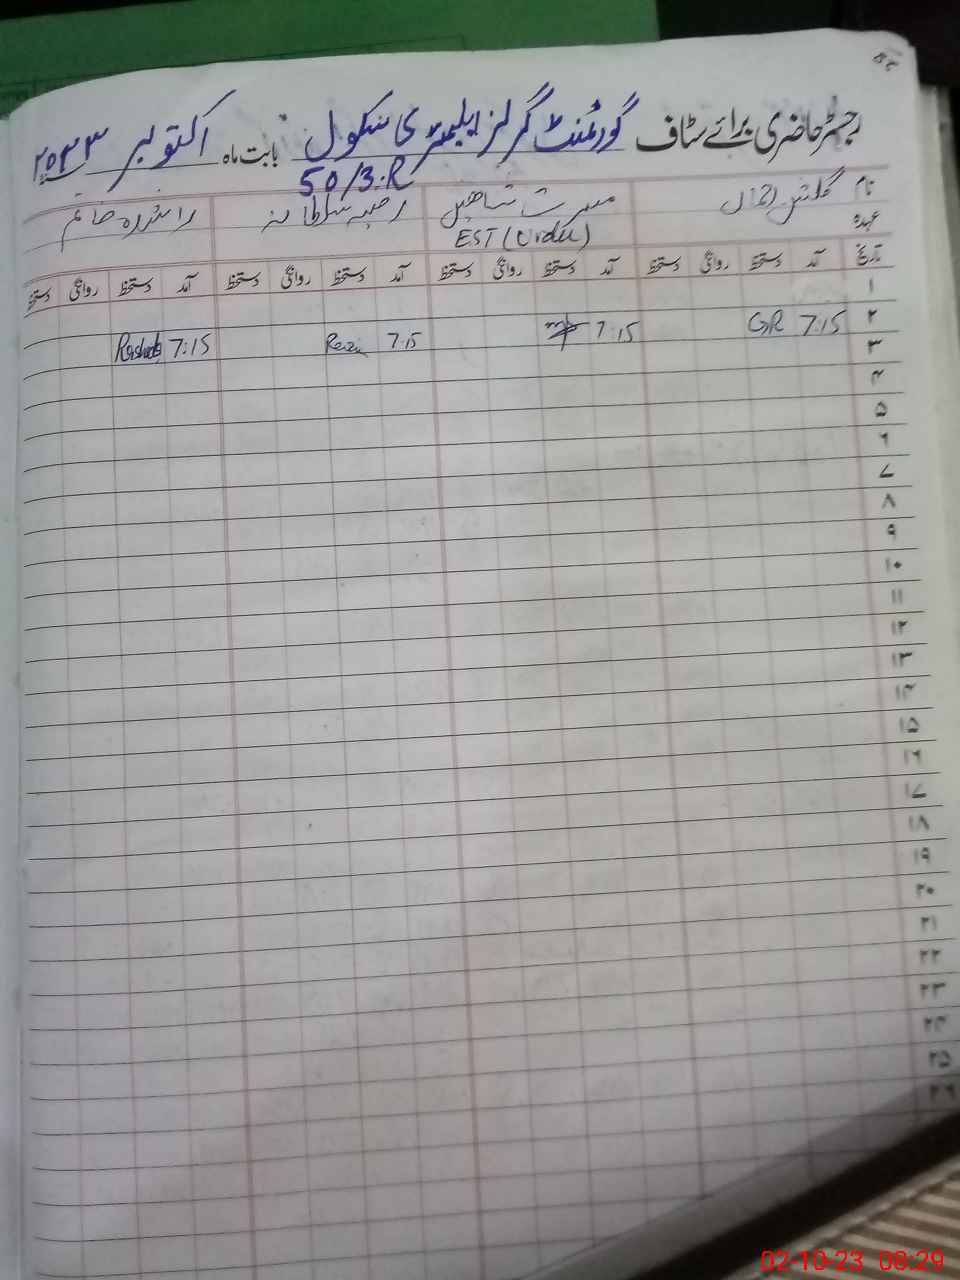 رجسٹر حاضری برائے سٹاف گورنمنٹ گرلز ایلیمنٹری سکول بابت ماہ اکتوبر ۲۰۲۳
50/3.R
نام مسرت شاہین رضیہ سلطانہ راشدہ خانم
عہدہ EST (Urdu)
تاریخ آمد دستخط روانگی دستخط آمد دستخط روانگی دستخط آمد دستخط روانگی دستخط آمد دستخط روانگی دستخط
۱
۲ 7:15 GR 7:15 7:15 7:15 Rashida
۳
۴
۵
۶
۷
۸
۹
۱۰
۱۱
۱۲
۱۳
۱۴
۱۵
۱۶
۱۷
۱۸
۱۹
۲۰
۲۱
۲۲
۲۳
۲۴
۲۵
۲۶
02-10-23 08:29